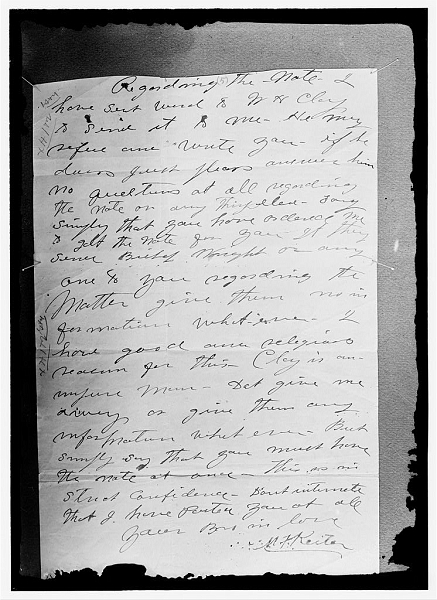 Regording the - Note - I
have sent word to W H Clay
to send it to me - He may
refuse and write you - if he
does just pleas answer him
no questions at all regarding
the note or any thing else - Say
simply that you have ordered me
to get the note for you - If they
send Brief Thought or any
one to you regording the
Matter give them no in
formation what-ever - I
have good and religios
reason for this - Clay is an
Man - Dot give me
away or give them any
information what ever - But
simply say that you must have
the note at once - this is in
strict Confidence - Dont intimate
that I have wrote you at all
Your Bro in love